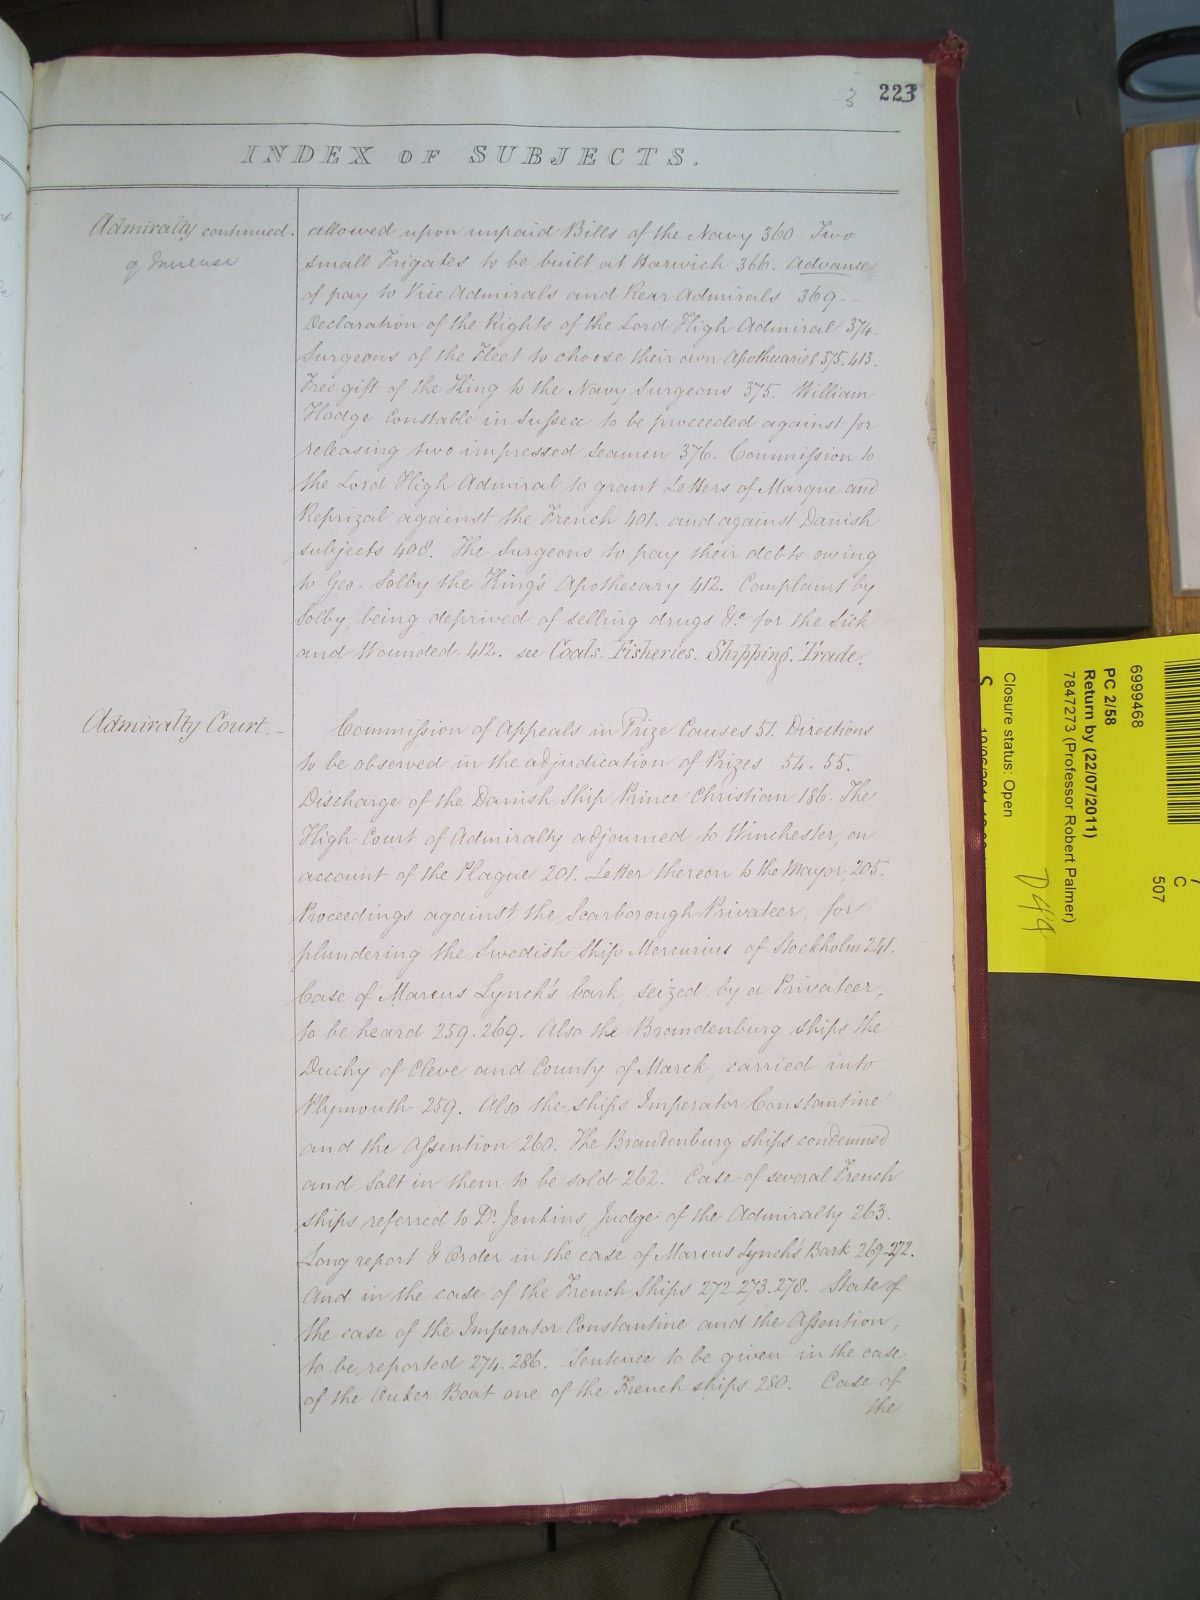 3 223
INDEX OF SUBJECTS.
Admiralty continued.
q Increase
allowed upon unpaid Bills of the Navy 360 Two
small Frigates to be built at Harwich 366. Advance
of pay to Vice Admirals and Rear Admirals 369.
Declaration of the Rights of the Lord High Admiral 374.
Surgeons of the Fleet to choose their own Apothecaries 375. 413.
Free gift of the King to the Navy Surgeons 375. William
Hodge Constable in Sussex to be proceeded against for
releasing two impressed Seamen 376. Commission to
the Lord High Admiral to grant Letters of Marque and
Reprizal against the French 401. and against Danish
subjects 408. The Surgeons to pay their debts owing
to Geo. Solby the King's Apothecary 412. Complaint by
Solby, being deprived of selling drugs &c for the Sick
and Wounded 412. see Coals. Fisheries. Shipping. Trade.
Admiralty Court.
Commission of Appeals in Prize Causes 51. Directions
to be observed in the adjudication of Prizes 54. 55.
Discharge of the Danish Ship Prince Christian 186. The
High Court of Admiralty adjourned to Winchester, on
account of the Plague 201. Letter thereon to the Mayor, 205.
Proceedings against the Scarborough Privateer for
plundering the Swedish Ship Mercurius of Stockholm 241.
Case of Marcus Lynch's bark, seized by a Privateer,
to be heard 259. 269. Also the Brandenburg Ships the
Duchy of Cleve and County of Marck, carried into
Plymouth 259. Also the ships Imperator Constantine
and the Assention 260. The Brandenburg ships condemned
and Salt in them to be sold 262. Case of several French
ships referred to Dr Jenkins, Judge of the Admiralty 263.
Long report & Order in the case of Marcus Lynch's Bark 269-272.
And in the case of the French Ships 272. 273. 278. State of
the case of the Imperator Constantine and the Assention,
to be reported 274. 286. Sentence to be given in the case
of the Boat one of the French ships 280. Case of
the
6999468
PC 2/58
Return by (22/07/2011)
7847273 (Professor Robert Palmer)
Closure status: Open
C
507
S
D49